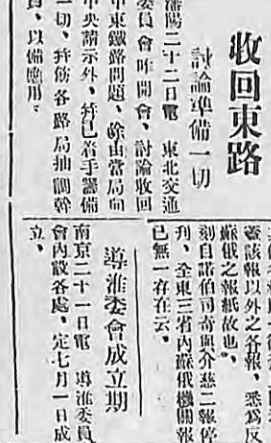 收回東路
討論準備一切
瀋陽二十二日電　東北交通
委員會昨開會、討論收回
中東鐵路問題、除由當局向
中央請示外、幷已着手籌備
一切、幷飭各路局抽調幹
員、以備應用。
該報以外之各報、悉爲反
蘇俄之報紙故也、
刻自諾伯司奇與介慈二報停
刊、全東三省內蘇俄機關報
已無一存在云。
導淮委會成立期
南京二十一日電　導淮委員
會內設各處、定七月一日成
立。